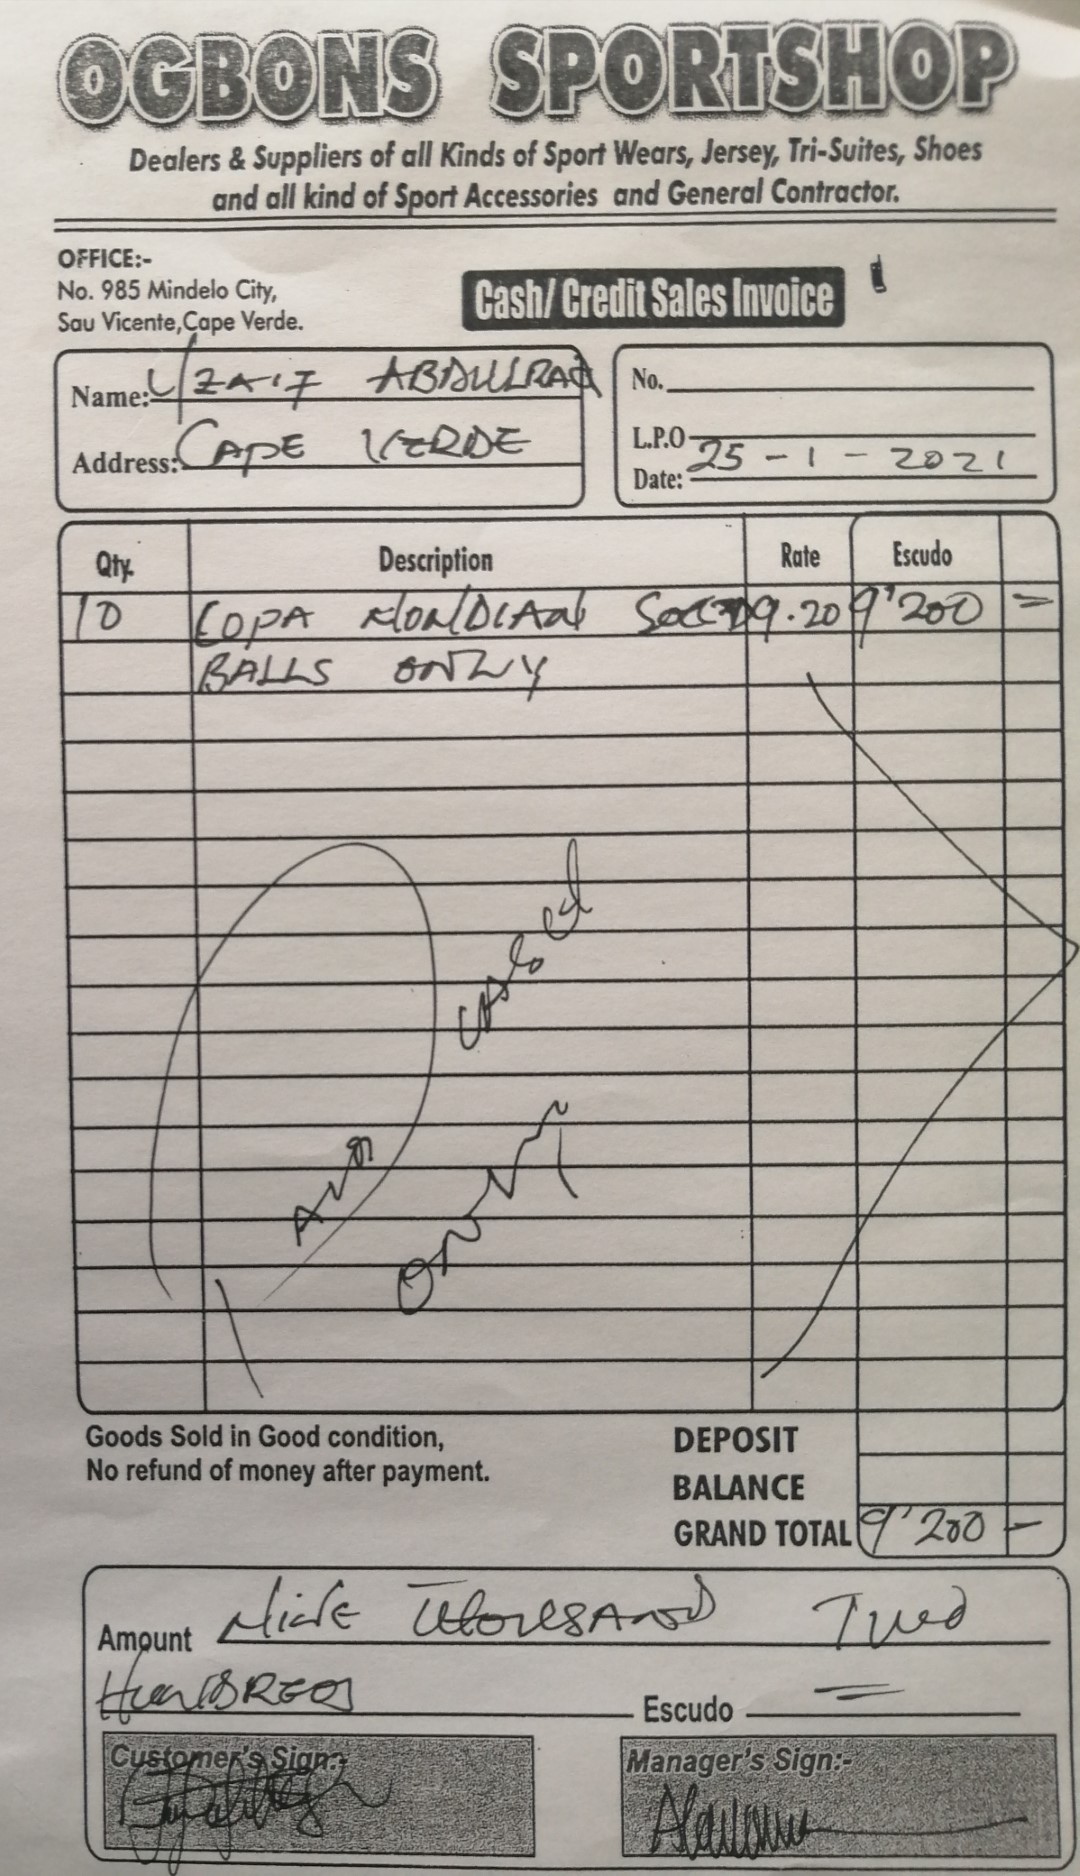 OGBONS SPORTSHOP
Dealers & Suppliers of all Kinds of Sport Wears, Jersey, Tri-Suites, Shoes
and all kind of Sport Accessories and General Contractor.
OFFICE:-
No. 985 Mindelo City,
Sau Vicente, Cape Verde.
Cash/ Credit Sales Invoice
Name: ABDULRAQ
Address: CAPE VERDE
No.
L.P.O
Date: 25 - 1 - 2021
Qty. Description Rate Escudo
10 COPA MONDIAL 9.20 9'200 =
BALLS ONLY
Goods Sold in Good condition,
No refund of money after payment.
DEPOSIT
BALANCE
GRAND TOTAL 9'200 -
Amount NINE THOUSAND TWO
HUNDRED Escudo =
Customer's Sign:-
Manager's Sign:-